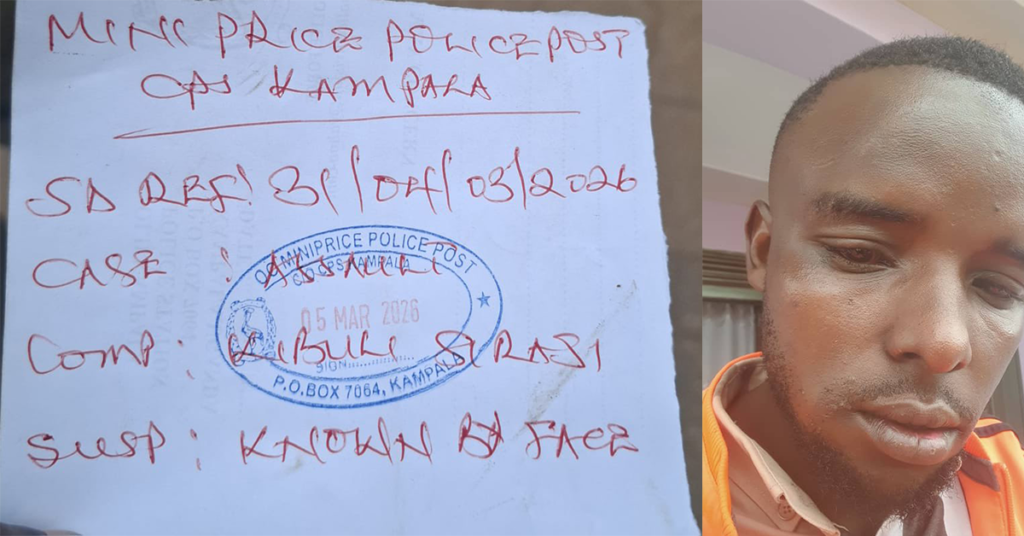 MINI PRICE POLICE POST
CPS KAMPALA
SD REF: 31/04/03/2026
CASE : ASSAULT
COMP : KIBULI SIRASI
SUSP : KNOWN BY FACE
OC MINIPRICE POLICE POST
C/O CPS KAMPALA
05 MAR 2026
SIGN..................
P.O.BOX 7064, KAMPALA